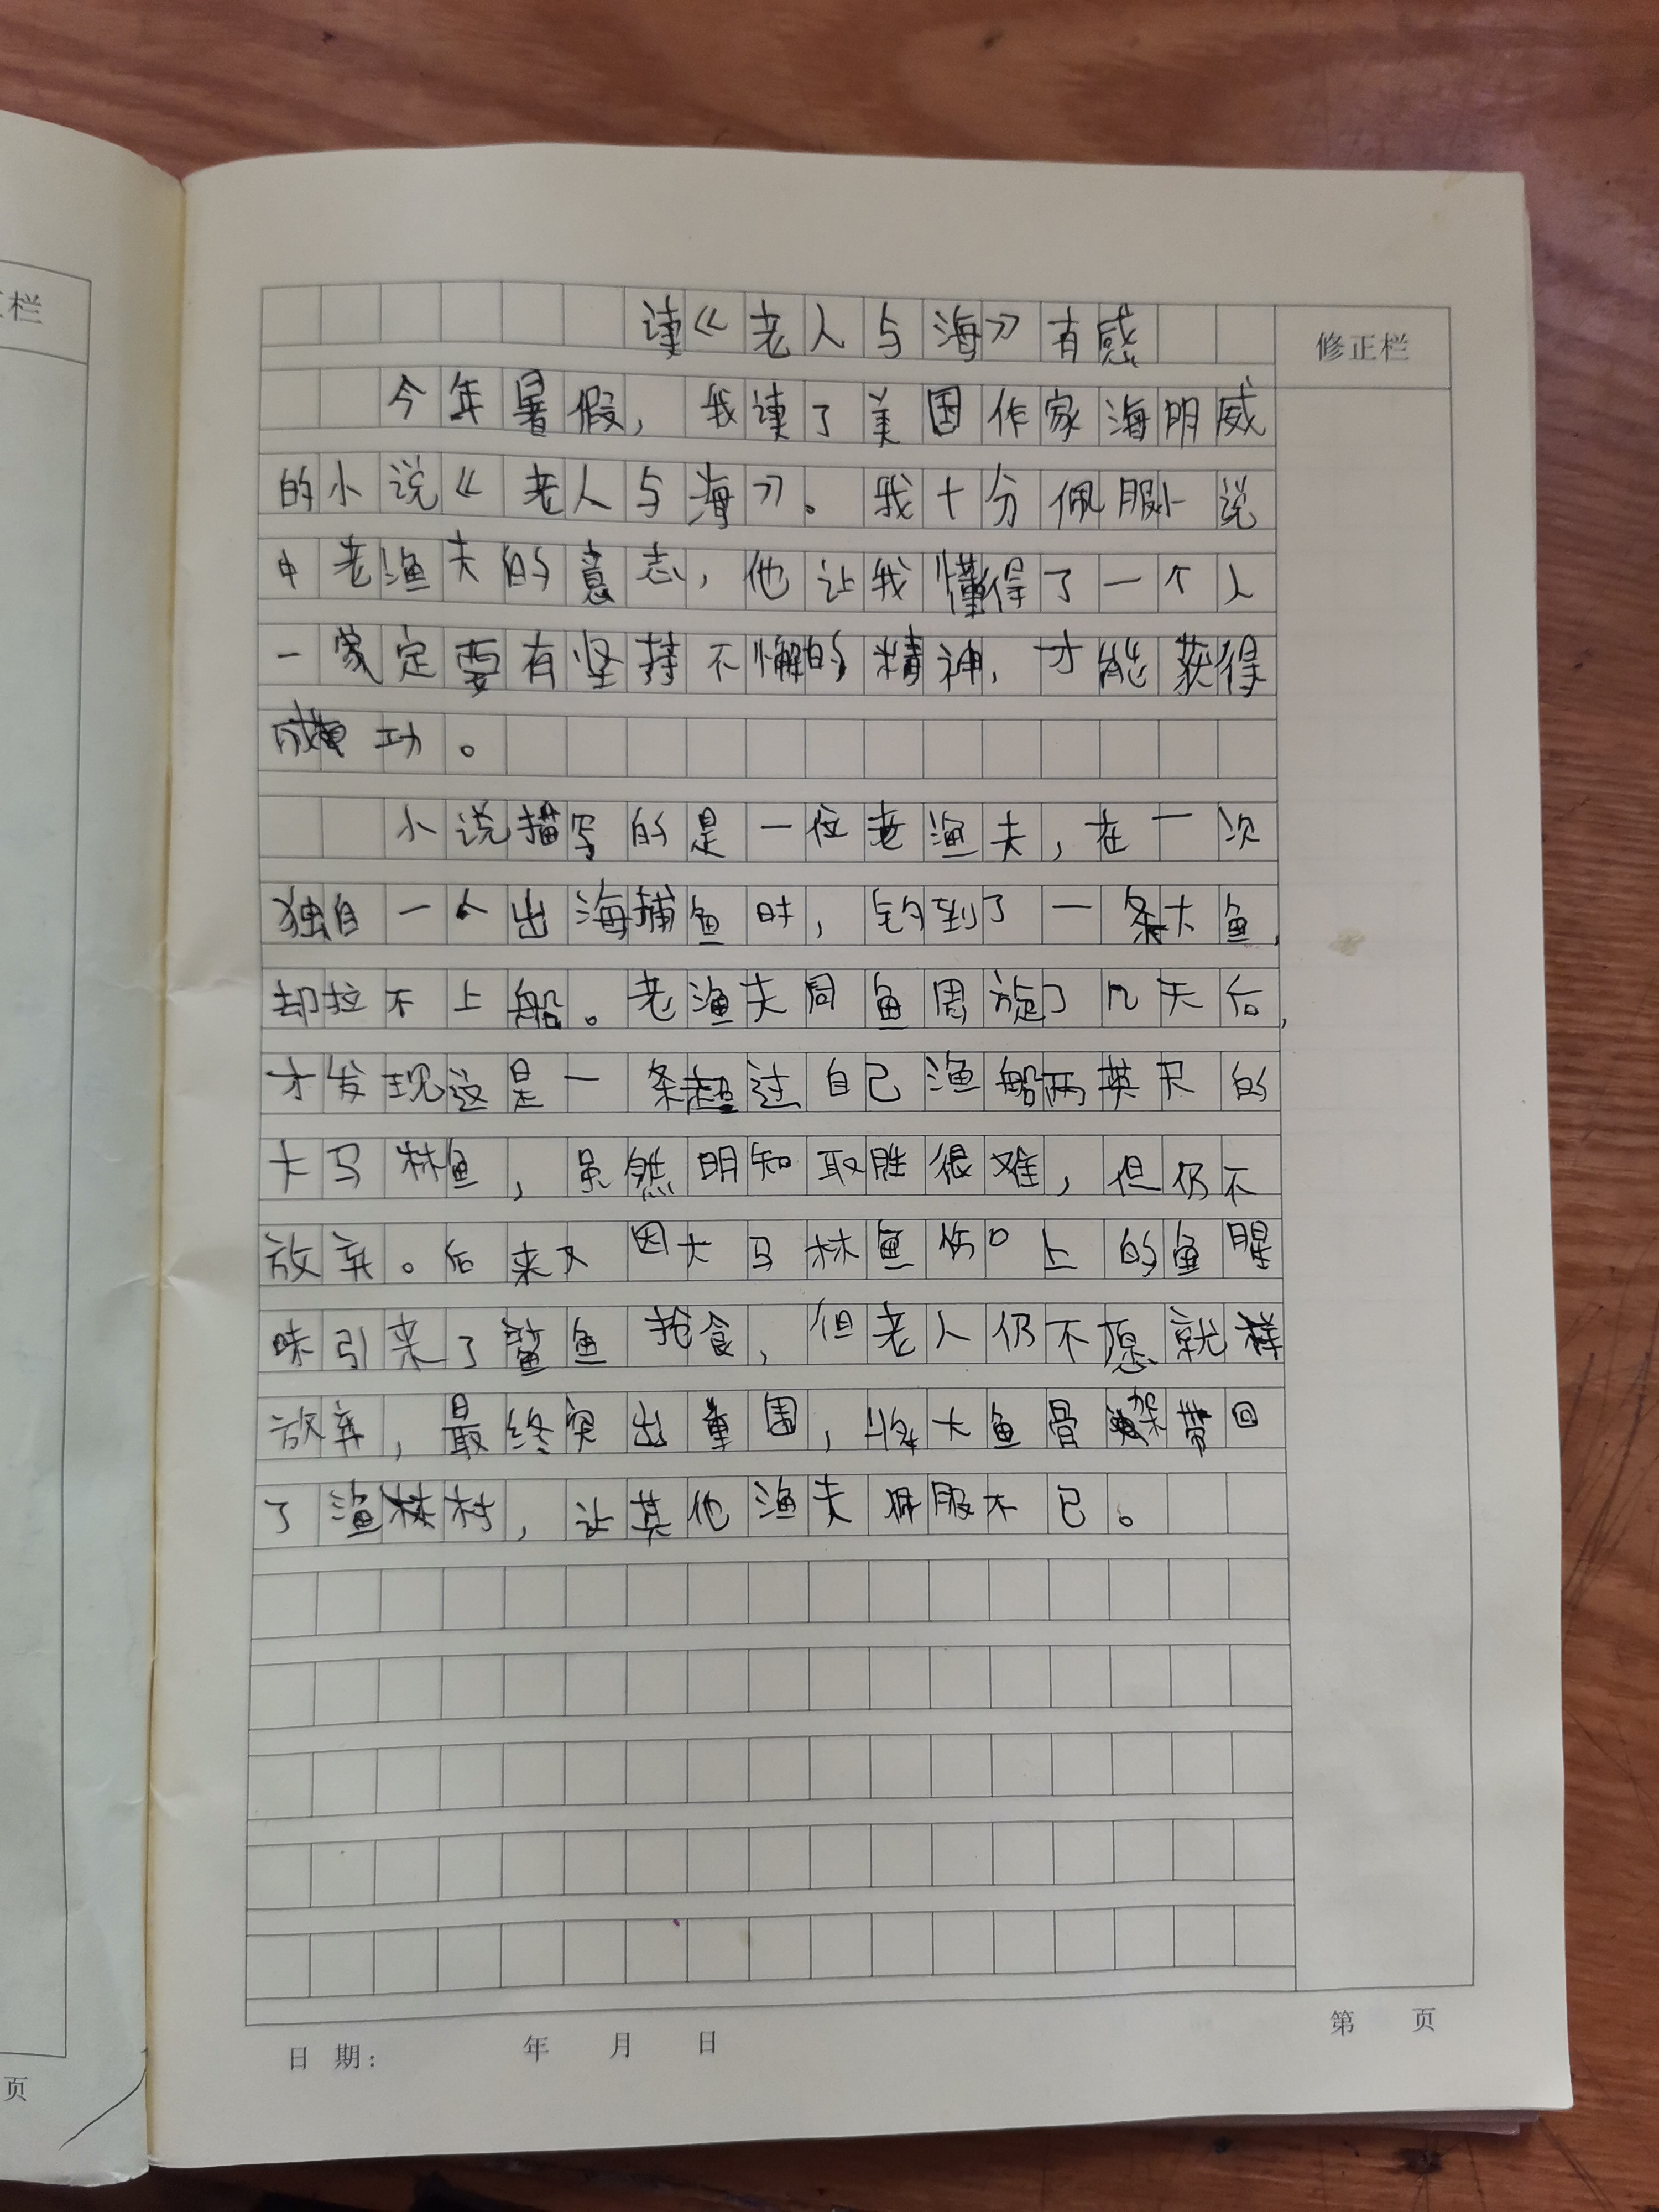 栏
读《老人与海》有感
修正栏
今年暑假,我读了美国作家海明威
的小说《老人与海》。我十分佩服小说
中老渔夫的意志,他让我懂得了一个人
一家定要有坚持不懈的精神,才能获得
成功。
小说描写的是一位老渔夫,在一次
独自一人出海捕鱼时,钓到了一条大鱼,
却拉不上船。老渔夫同鱼周旋了几天后,
才发现这是一条超过自己渔船两英尺的
大马林鱼,虽然明知取胜很难,但仍不
放弃。后来又因大马林鱼伤口上的鱼腥
味引来了鲨鱼抢食,但老人仍不愿就样
放弃,最终突出重围,将大鱼骨架带回
了渔村,让其他渔夫佩服不已。
日期: 年 月 日
第 页
页